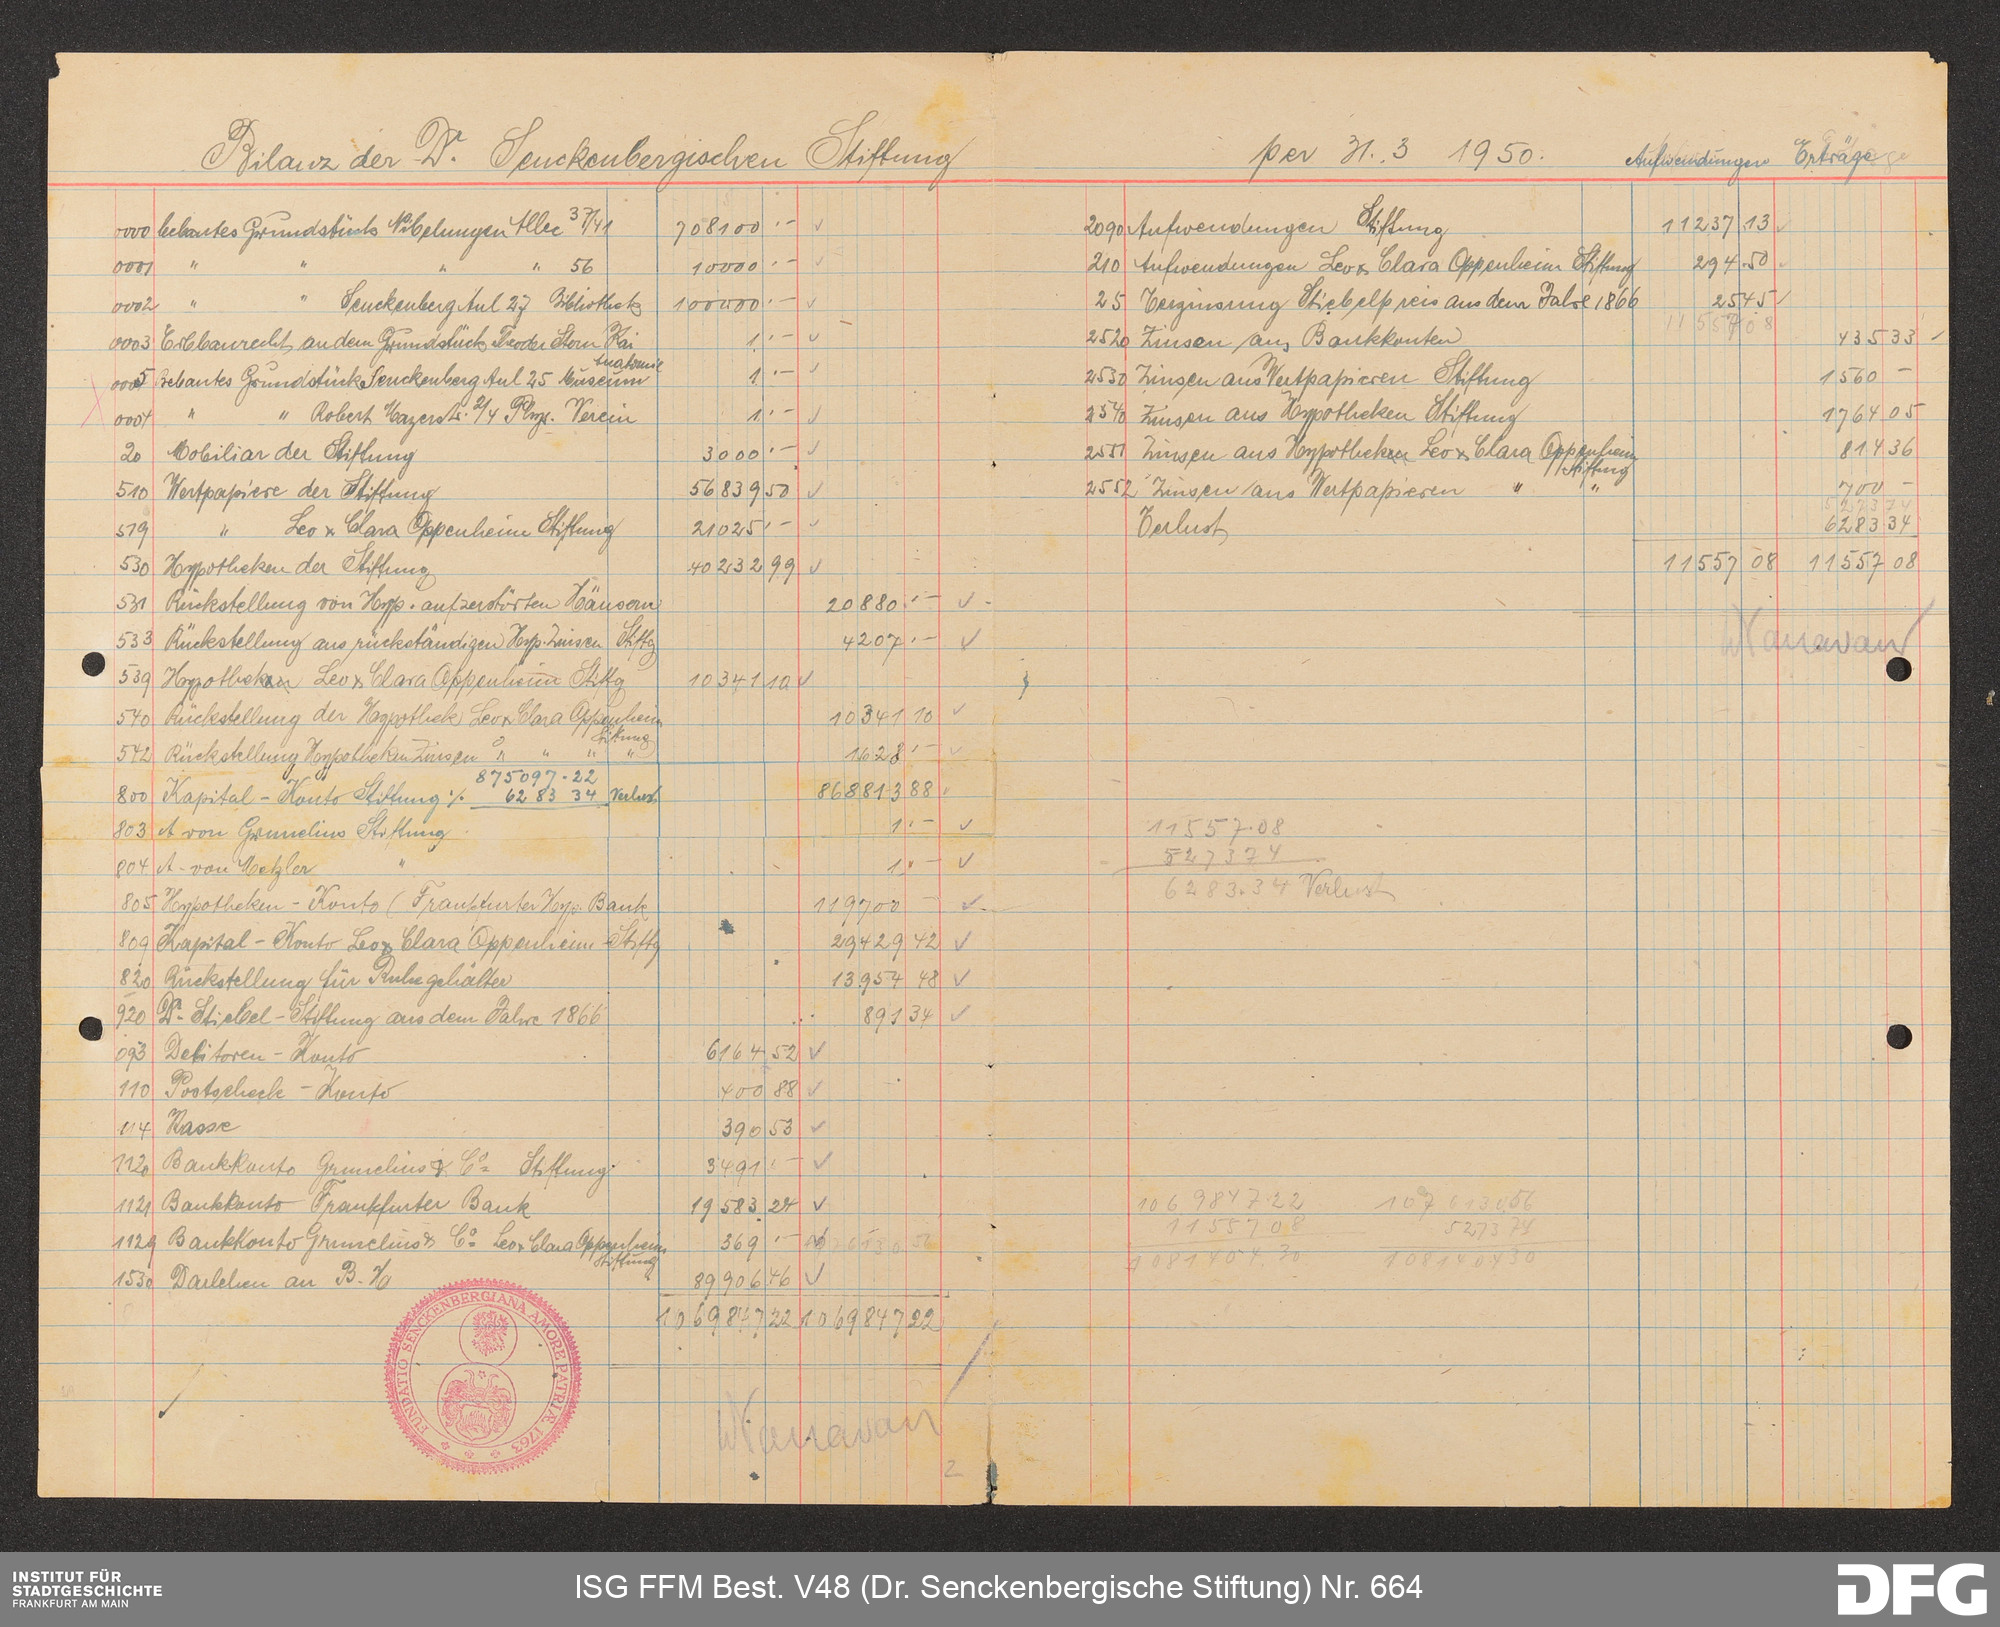 Bilanz der Dr. Senckenbergischen Stiftung per 31.3 1950. Aufwendungen Erträge
0000 bebautes Grundstück Nibelungen Allee 37/41 708100.–
0001 " " " " 56 10000.–
0002 " " Senckenberg Anl 27 Bibliothek 100000.–
0003 Erbbaurecht an dem Grundstück Theodor Storn Kai 1.–
Anatomie
0005 Bebautes Grundstück Senckenberg Anl 25 Museum 1.–
0004 " " Robert Mayerstr. 2/4 Phys. Verein 1.–
20 Mobiliar der Stiftung 3000.–
510 Wertpapiere der Stiftung 56839 50
519 " Leo & Clara Oppenheim Stiftung 21025.–
530 Hypotheken der Stiftung 40232 99
531 Rückstellung von Hyp. auf zerstörten Häusern 20880.–
533 Rückstellung aus rückständigen Hyp. Zinsen Stiftg 4207.–
539 Hypotheken Leo & Clara Oppenheim Stiftg 10341 10
540 Rückstellung der Hypothek Leo & Clara Oppenheim 10341 10
Stiftung
542 Rückstellung Hypotheken Zinsen " " " " 1628.–
875097.22
800 Kapital – Konto Stiftung ./. 6283 34 Verlust 868813 88
803 A von Grunelius Stiftung 1.–
804 A. von Metzler " 1.–
805 Hypotheken – Konto ( Frankfurter Hyp. Bank 119700 –
809 Kapital – Konto Leo & Clara Oppenheim – Stiftg 29429 42
820 Rückstellung für Ruhegehälter 13954 48
920 Dr. Stiebel – Stiftung aus dem Jahre 1866 891 34
093 Debitoren – Konto 6164 52
110 Postscheck – Konto 400 88
114 Kasse 390 53
1120 Bankkonto Grunelius & Co = Stiftung 3491.–
1121 Bankkonto Frankfurter Bank 19583 24
1129 Bankkonto Grunelius & Co = Leo & Clara Oppenheim 369.–
Stiftung
1530 Darlehen an B. H 89906 46
1069847 22 1069847 22
FUNDATIO SENCKENBERGIANA AMORE PATRIÆ. 1763
2
2090 Aufwendungen Stiftung 11237.13
210 Aufwendungen Leo & Clara Oppenheim Stiftung 294.50
25 Verzinsung Stiebelpreis aus dem Jahre 1866 25 45
11557 08
2520 Zinsen aus Bankkonten 435 33
2530 Zinsen aus Wertpapieren Stiftung 1560 –
2540 Zinsen aus Hypotheken Stiftung 1764 05
2551 Zinsen aus Hypotheken Leo & Clara Oppenheim 814 36
Stiftung
2552 Zinsen aus Wertpapieren " " 700 –
5273 74
Verlust 6283 34
11557 08 11557 08
11557.08
5273 74
6283.34 Verlust
1069847.22 1076130,56
11557 08 5273 74
1081404.30 1081404 30
INSTITUT FÜR
STADTGESCHICHTE
FRANKFURT AM MAIN
ISG FFM Best. V48 (Dr. Senckenbergische Stiftung) Nr. 664
DFG